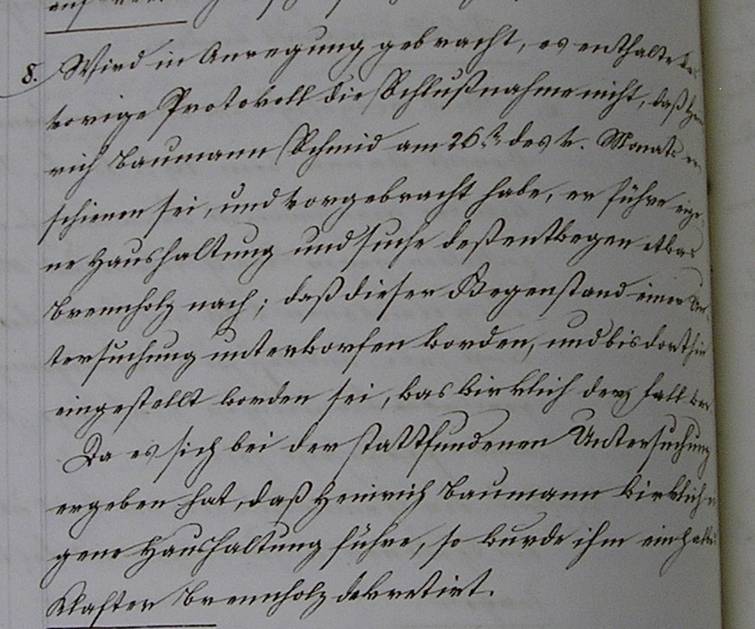 8. Wird in Anregung gebracht, es enthalte das
vorige Protokoll die Schlußnahme nicht, daß Hein
rich Baumann Schmid am 26t. des v. Monats er
schienen sei, und vorgebracht habe, er führe eige
ne Haushaltung und suche deßentwegen etwas
Brennholz nach; daß dieser Gegenstand einer Un
tersuchung unterworfen worden, und bis dorthin
eingestellt worden sei, was wirklich der Fall war.
Da es sich bei der stattfundenen Untersuchung
ergeben hat, daß Heinrich Baumann wirklich ei
gene Haushaltung führe, so wurde ihm ein halb
Klafter Brennholz dekretirt.